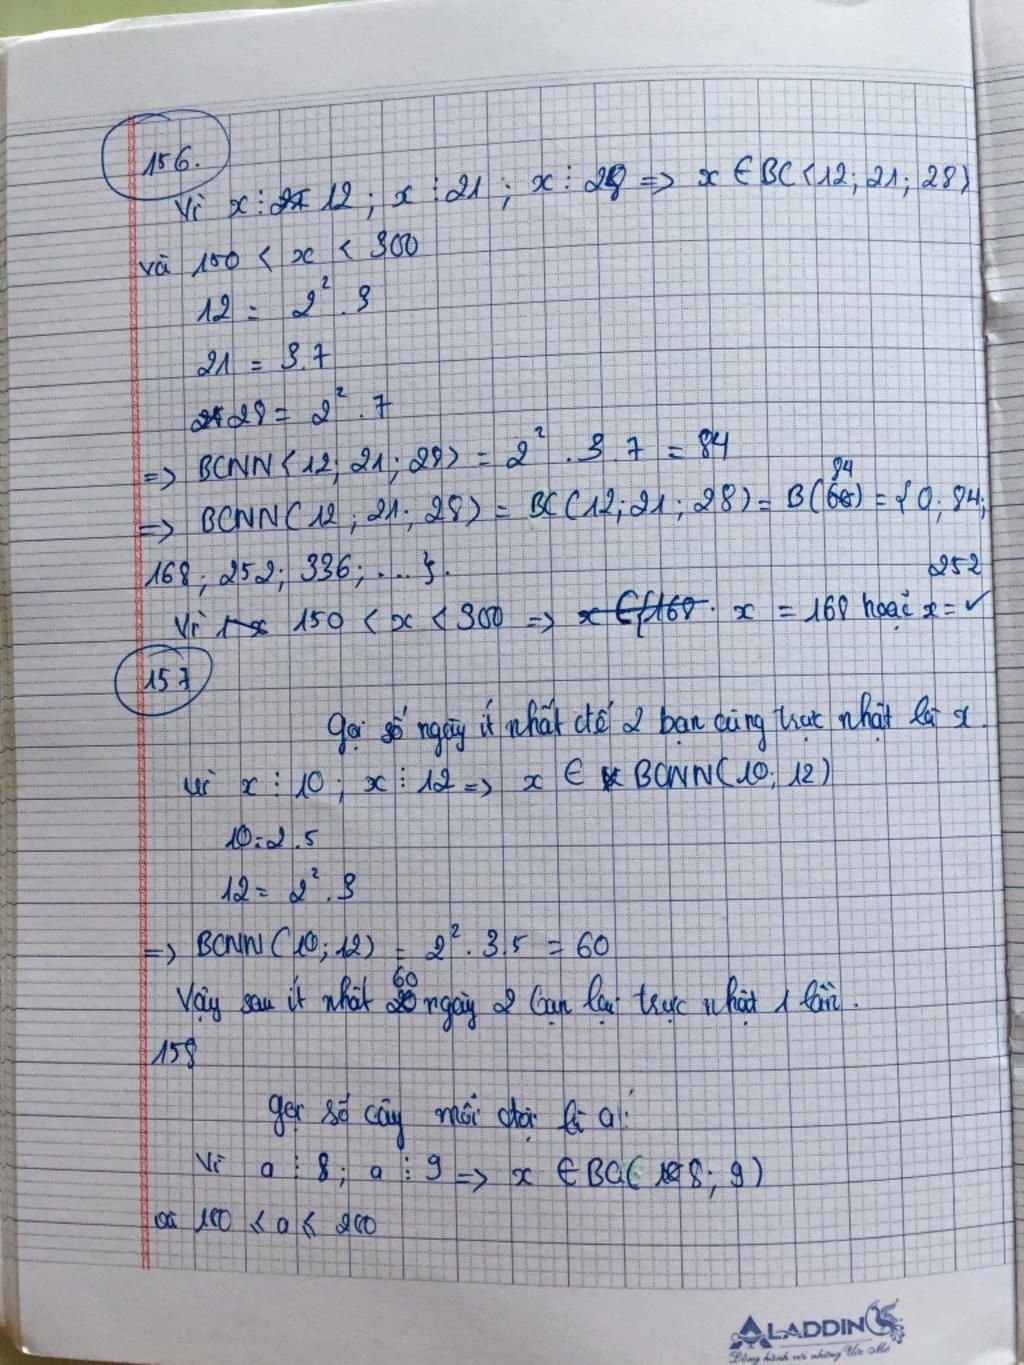 156.
Vì x ⋮ 12 ; x ⋮ 21 ; x ⋮ 28 => x ∈ BC(12; 21; 28)
và 150 < x < 300
12 = 2² . 3
21 = 3.7
28 = 2² . 7
=> BCNN(12; 21; 28) = 2² . 3 . 7 = 84
=> BCNN(12 ; 21; 28) = BC(12; 21; 28) = B(84) = {0; 84;
168; 252; 336; ....}.
Vì 150 < x < 300 => x = 168 hoặc x = 252
157
Gọi số ngày ít nhất để 2 bạn cùng trực nhật là x.
Vì x ⋮ 10 ; x ⋮ 12 => x ∈ BCNN(10; 12)
10 = 2 . 5
12 = 2² . 3
=> BCNN(10; 12) = 2² . 3.5 = 60
Vậy sau ít nhất 60 ngày 2 bạn lại trực nhật 1 lần.
158
Gọi số cây mỗi đội là a.
Vì a ⋮ 8; a ⋮ 9 => x ∈ BC(8; 9)
và 100 ≤ a ≤ 200
ALADDIN
Đồng hành với những Ước Mơ